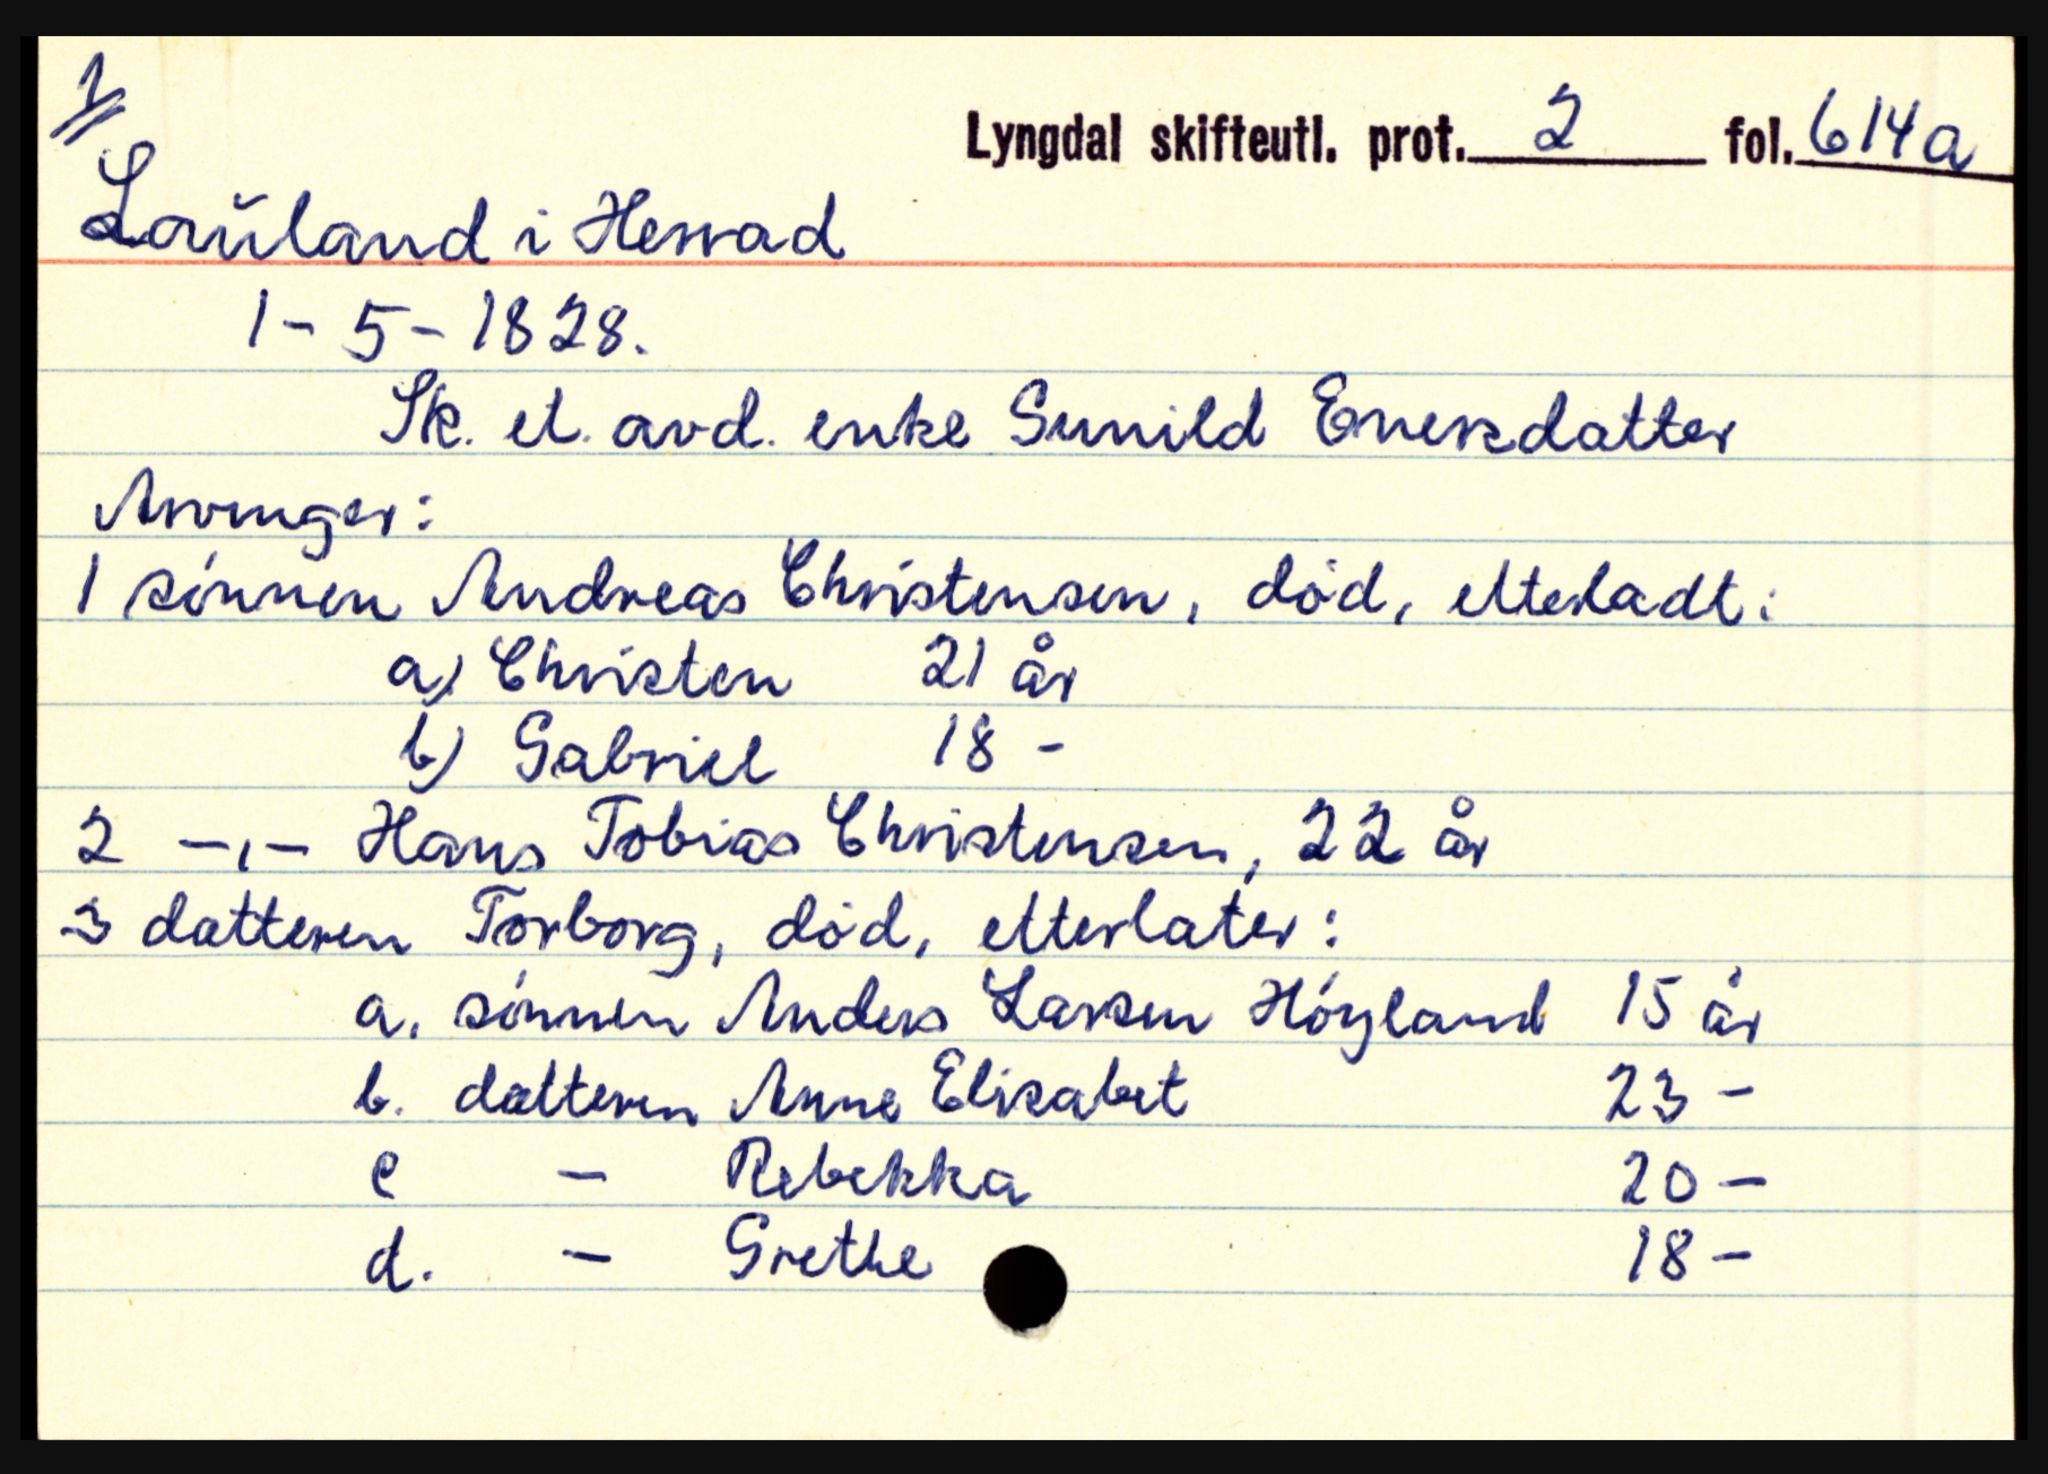 1
Lyngdal skifteutl. prot. 2 fol. 614a
Lauland i Herad
1-5-1828.
Sk. et. avd. enke Sunild Enersdatter
Arvinger:
1 sønnen Andreas Christensen, død, etterladt:
a) Christen 21 år
b) Gabriel 18 -
2 -,- Hans Tobias Christensen, 22 år
3 datteren Torborg, død, etterlater:
a. sønnen Anders Larsen Höyland 15 år
b. datteren Anne Elisabet 23 -
c - Rebekka 20 -
d. - Grethe 18 -